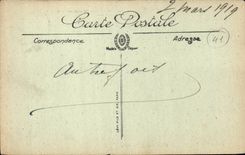 2 mars 1919
Carte Postale
Correspondance
Adresse
(41)
Autrefois